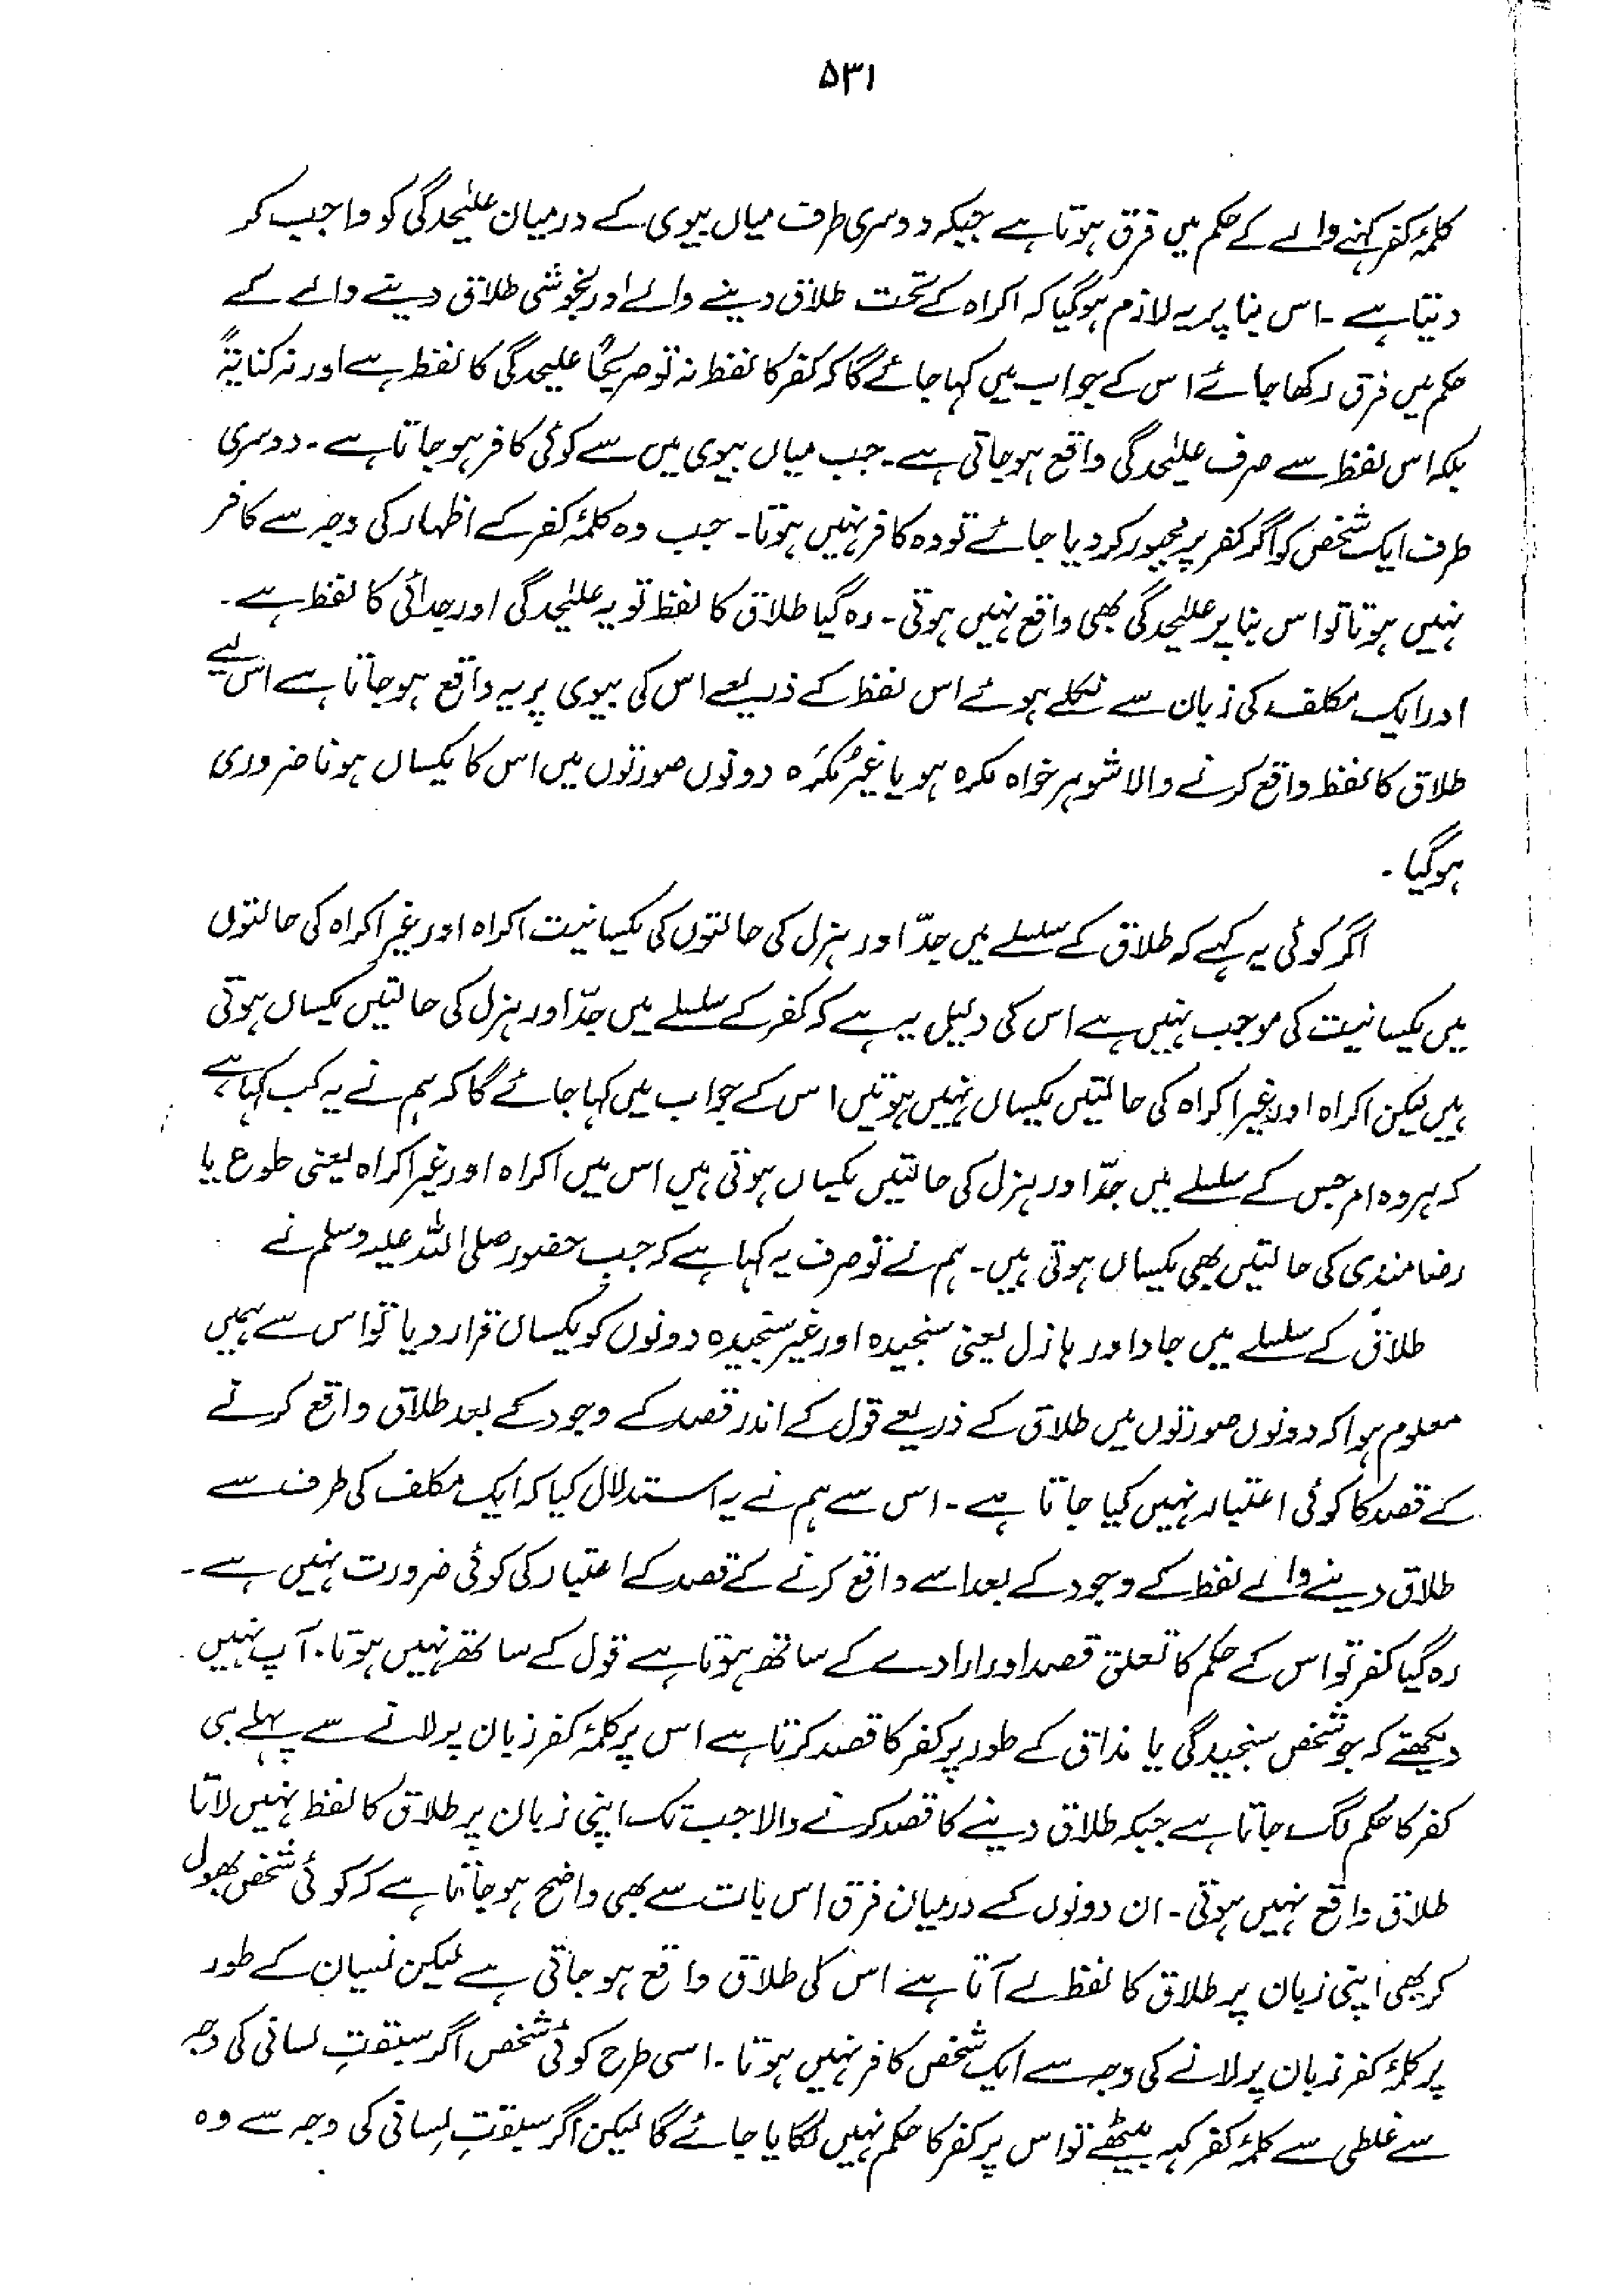 ۵۳۱
کلمۂ کفر کہنے والے کے حکم میں فرق ہوتا ہے جبکہ دوسری طرف میاں بیوی کے درمیان علیٰحدگی کو واجب کر
دیتا ہے۔ اس بنا پر یہ لازم ہوگیا کہ اکراہ کے تحت طلاق دینے والے اور بخوشی طلاق دینے والے کے
حکم میں فرق رکھا جائے اس کے جواب میں کہا جائے گا کہ کفر کا لفظ نہ تو صریحًا علیحدگی کا لفظ ہے اور نہ کنایۃً
بلکہ اس لفظ سے صرف علیٰحدگی واقع ہوجاتی ہے۔ جب میاں بیوی میں سے کوئی کافر ہوجاتا ہے۔ دوسری
طرف ایک شخص کو اگر کفر پر مجبور کردیا جائے تو وہ کافر نہیں ہوتا۔ جب وہ کلمۂ کفر کے اظہار کی وجہ سے کافر
نہیں ہوتا تو اس بنا پر علیٰحدگی بھی واقع نہیں ہوتی۔ رہ گیا طلاق کا لفظ تو یہ علیٰحدگی اور جدائی کا لفظ ہے۔
اور ایک مکلف کی زبان سے نکلے ہوئے اس لفظ کے ذریعے اس کی بیوی پر یہ واقع ہوجاتا ہے اس لیے
طلاق کا لفظ واقع کرنے والا شوہر خواہ مکرہ ہو یا غیر مُکرَہ دونوں صورتوں میں اس کا یکساں ہونا ضروری
ہوگیا۔
اگر کوئی یہ کہے کہ طلاق کے سلسلے میں جدّ اور ہزل کی حالتوں کی یکسانیت اکراہ اور غیر اکراہ کی حالتوں
میں یکسانیت کی موجب نہیں ہے اس کی دلیل یہ ہے کہ کفر کے سلسلے میں جدّ اور ہزل کی حالتیں یکساں ہوتی
ہیں لیکن اکراہ اور غیر اکراہ کی حالتیں یکساں نہیں ہوتیں اس کے جواب میں کہا جائے گا کہ ہم نے یہ کب کہا ہے
کہ ہر وہ امر جس کے سلسلے میں جدّ اور ہزل کی حالتیں یکساں ہوتی ہیں اس میں اکراہ اور غیر اکراہ یعنی طوع یا
رضامندی کی حالتیں بھی یکساں ہوتی ہیں۔ ہم نے تو صرف یہ کہا ہے کہ جب حضور صلی اللہ علیہ وسلم نے
طلاق کے سلسلے میں جاد اور ہازل یعنی سنجیدہ اور غیر سنجیدہ دونوں کو یکساں قرار دیا تو اس سے ہمیں
معلوم ہوا کہ دونوں صورتوں میں طلاق کے ذریعے قول کے اندر قصد کے وجود کے بعد طلاق واقع کرنے
کے قصد کا کوئی اعتبار نہیں کیا جاتا ہے۔ اس سے ہم نے یہ استدلال کیا کہ ایک مکلف کی طرف سے
طلاق دینے والے لفظ کے وجود کے بعد اسے واقع کرنے کے قصد کے اعتبار کی کوئی ضرورت نہیں ہے۔
رہ گیا کفر تو اس کے حکم کا تعلق قصد اور ارادے کے ساتھ ہوتا ہے قول کے ساتھ نہیں ہوتا۔ آپ نہیں
دیکھتے کہ جو شخص سنجیدگی یا مذاق کے طور پر کفر کا قصد کرتا ہے اس پر کلمۂ کفر زبان پر لانے سے پہلے ہی
کفر کا حکم لگ جاتا ہے جبکہ طلاق دینے کا قصد کرنے والا جب تک اپنی زبان پر طلاق کا لفظ نہیں لاتا
طلاق واقع نہیں ہوتی۔ ان دونوں کے درمیان فرق اس بات سے بھی واضح ہوجاتا ہے کہ کوئی شخص بھول
کر بھی اپنی زبان پر طلاق کا لفظ لے آتا ہے اس کی طلاق واقع ہوجاتی ہے لیکن نسیان کے طور
پر کلمۂ کفر زبان پر لانے کی وجہ سے ایک شخص کافر نہیں ہوتا۔ اسی طرح کوئی شخص اگر سبقتِ لسانی کی وجہ
سے غلطی سے کلمۂ کفر کہہ بیٹھے تو اس پر کفر کا حکم نہیں لگایا جائے گا لیکن اگر سبقتِ لسانی کی وجہ سے وہ